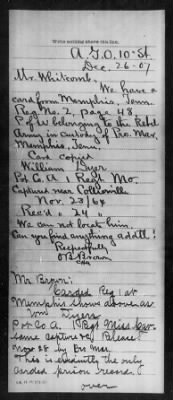 Write nothing above this line.
A.G.O. 10th St.
Dec. 26-07
Mr. Whitcomb.
We have a
card from Memphis, Tenn.
Reg No. 2, page 48,
P of W belonging to the Rebel
Army in custody of Pro. Mar.
Memphis, Tenn:
Card copied
William Dyer
Pvt Co. A 1 Regt Mo.
Captured near Colliersville
Nov. 23/64
Rec'd " 24 "
We can not locate him.
Can you find anything addtl?
Respectfully
Brown
Mr. Brown:
Carded Reg 1 at
Memphis shows above as
Wm Dyers
Pvt Co. A 1 Regt Miss Cav.
same capture &c Released
Nov by
This is evidently the only
carded prison record.
over